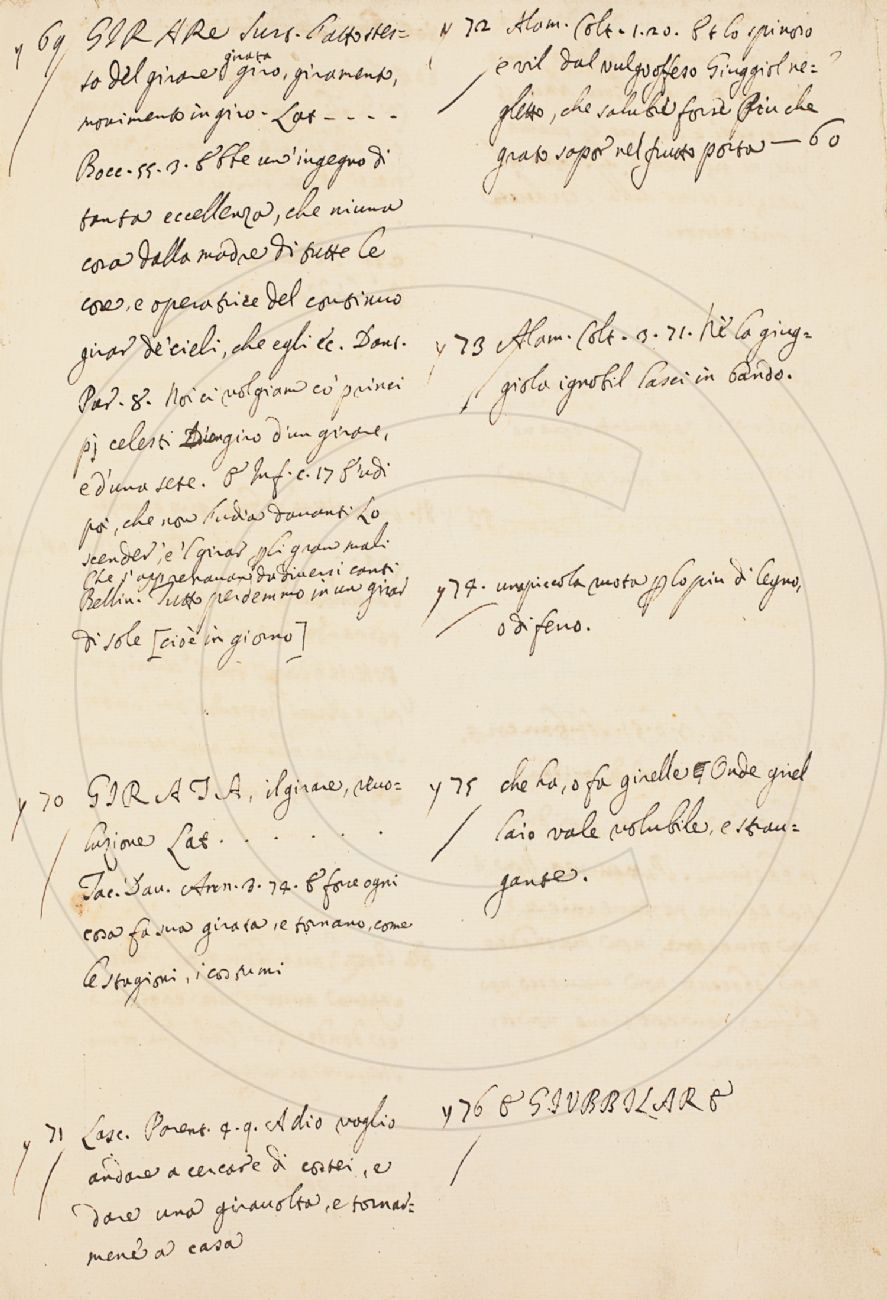 y 69 GIRARE Sust. l'atto stes=
so del girare girata giro, giramento,
movimento in giro. Lat - - - -
Bocc. 55. 3. Ebbe un'ingegno di
tanta eccellenza, che niuna
cosa dalla madre di tutte le
cose, e operatrice del continuo
girar de' cieli, che egli &c. Dant.
Par. 8. Noi ci volgiam co' princi
pj celesti D'un giro d'un girare,
e d'una sete. E Inf. c. 17 E udi
poi, che non l'udia davanti Lo
scender, e 'l girar p li gran mali
Che s'appressavan da diversi canti
Bellin. Tutto perdemmo in un girar
di sole [cioè in giorno]
y 70 GIRATA, il girare, rivo=
luzione Lat . . . . . .
Tac. Dav. Ann. 3. 74. E forse ogni
cosa fa sua girata, e tornano, come
le stagioni, i costumi
y 71 Lasc. Parent. 4. 9. Adio voglio
andare a cercare di costei, e
dare una giravolta, e tornar=
mene a casa
y 72 Alam. Colt. 1. 20. Et lo spinoso
e vil dal vulgo offeso Giuggiol ne=
gletto, che salubre forse Più che
grato sapor nel frutto porta — 60
y 73 Alam. Colt. 3. 71. Nè la giug=
giola ignobil lasci in bando.
y 74. una piccola ruota p lo più di legno,
o di ferro.
y 75 che ha, o fa girelle Onde griel
laio vale volubile, e strau=
gante.
y 76 E GIUBBILARE